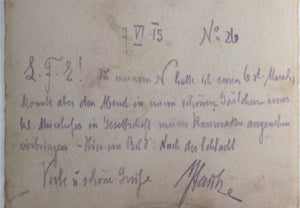 7 VI 15 No 26
L. F. E! In meinem N hatte ich einen 6 st. Marsch,
konnte aber den Abend in einem schönen Gärtchen eines
kl. in Gesellschaft meiner Kameraden angenehm
verbringen – Hier ein Bild: Nach der Schlacht.
Viele u schöne Grüße